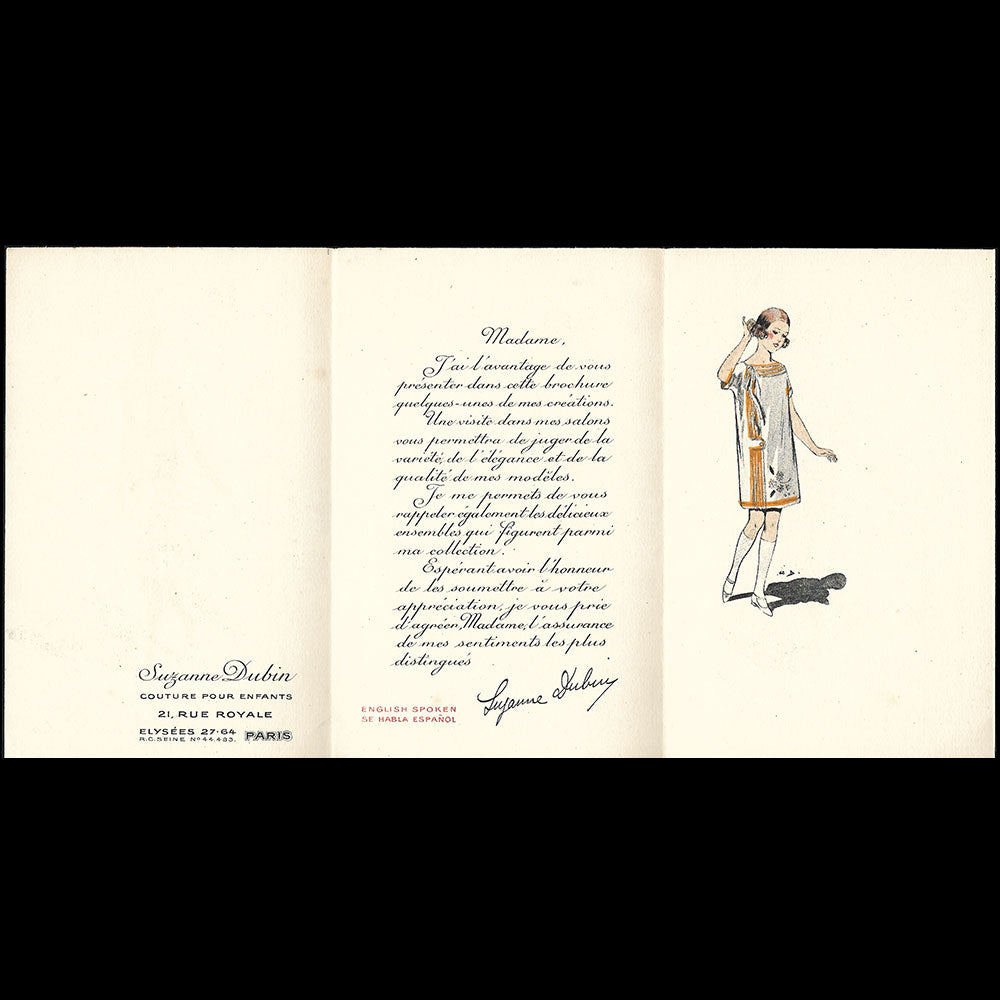 Suzanne Dubin
COUTURE POUR ENFANTS
21, RUE ROYALE
ELYSÉES 27·64
R.C. SEINE Nº 44.483. PARIS
Madame,
J'ai l'avantage de vous
présenter dans cette brochure
quelques-unes de mes créations.
Une visite dans mes salons
vous permettra de juger de la
variété, de l'élégance et de la
qualité de mes modèles.
Je me permets de vous
rappeler également les délicieux
ensembles qui figurent parmi
ma collection.
Espérant avoir l'honneur
de les soumettre à votre
appréciation, je vous prie
d'agréer, Madame, l'assurance
de mes sentiments les plus
distingués
Suzanne Dubin
ENGLISH SPOKEN
SE HABLA ESPAÑOL